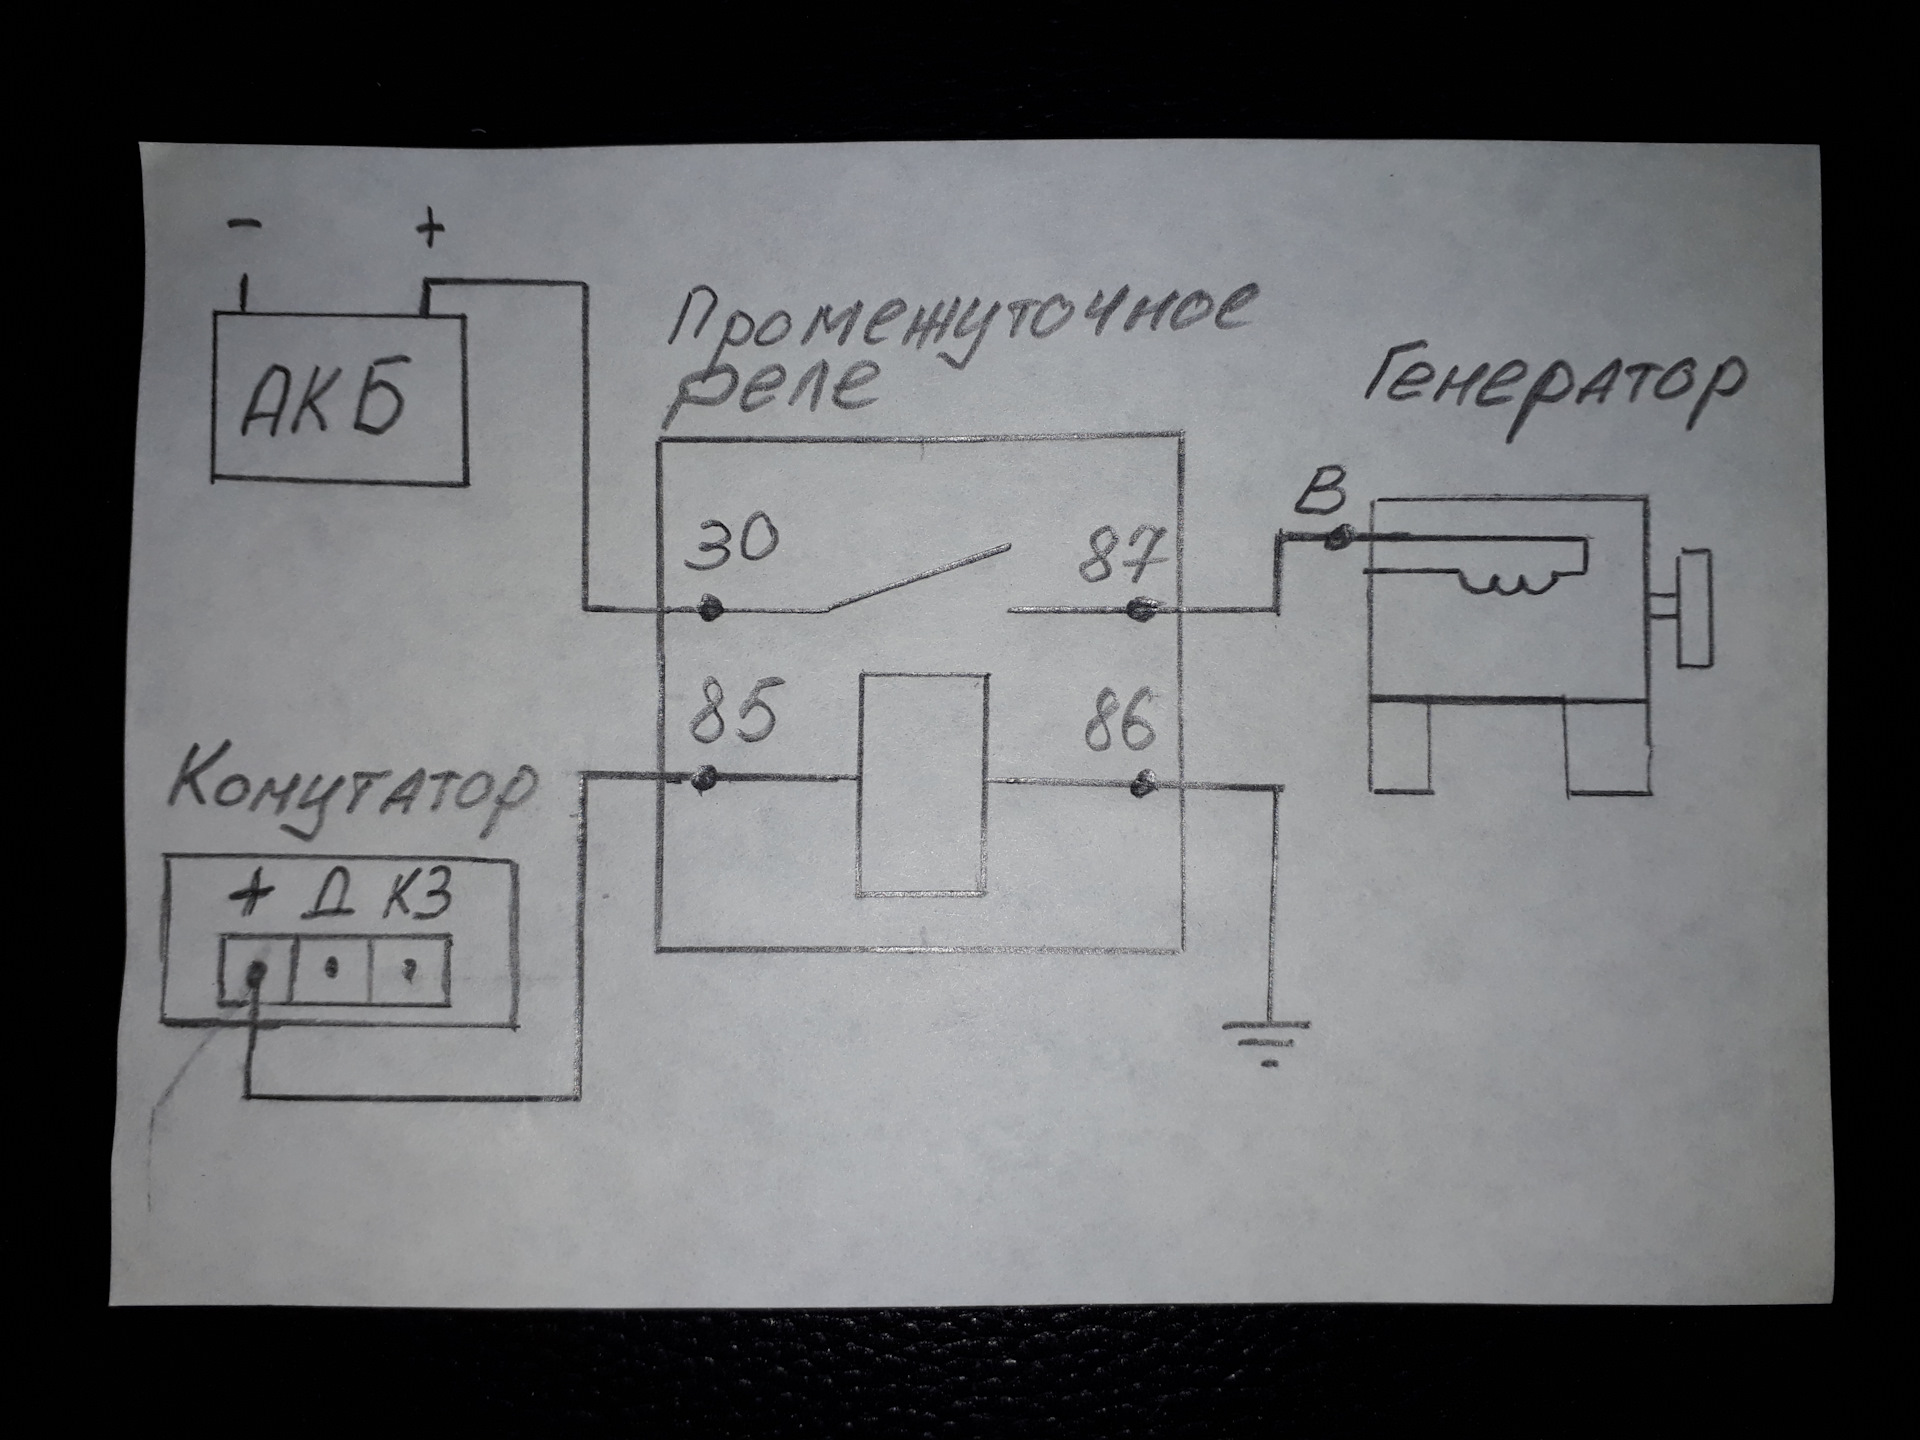 - +
АКБ
Промежуточное
реле
Генератор
В
30
87
85
86
Комутатор
+ Д КЗ